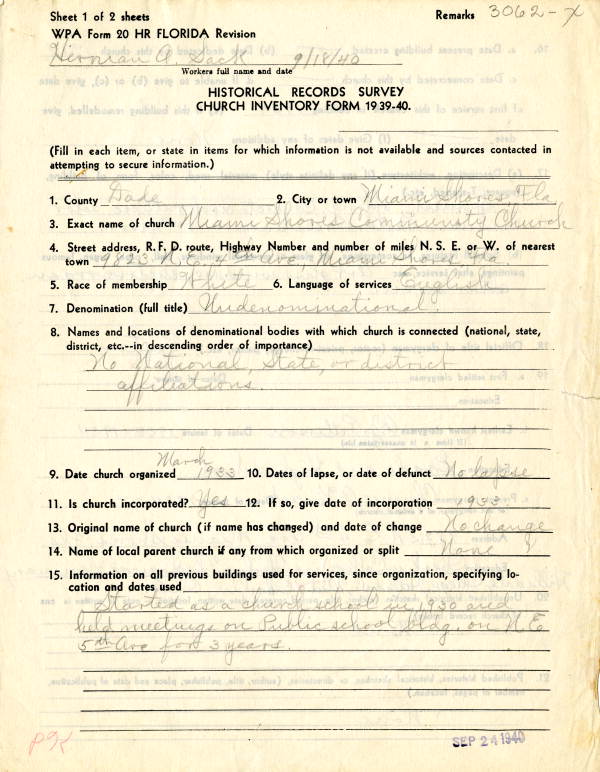 Sheet 1 of 2 sheets Remarks 3062-X
WPA Form 20 HR FLORIDA Revision
Herman A. Sack 9/18/40
Workers full name and date
HISTORICAL RECORDS SURVEY
CHURCH INVENTORY FORM 1939-40.
(Fill in each item, or state in items for which information is not available and sources contacted in
attempting to secure information.)
1. County Dade 2. City or town Miami Shores, Fla
3. Exact name of church Miami Shores Community Church
4. Street address, R. F. D. route, Highway Number and number of miles N. S. E. or W. of nearest
town 9823 N. E. 4th Ave, Miami Shores Fla.
5. Race of membership White 6. Language of services English
7. Denomination (full title) Undenominational.
8. Names and locations of denominational bodies with which church is connected (national, state,
district, etc.--in descending order of importance)
No National, State, or district
affiliations.
March
9. Date church organized 1933 10. Dates of lapse, or date of defunct No lapse
11. Is church incorporated? Yes 12. If so, give date of incorporation 1933
13. Original name of church (if name has changed) and date of change No change
14. Name of local parent church if any from which organized or split None
15. Information on all previous buildings used for services, since organization, specifying lo-
cation and dates used
Started as a church school in 1930 and
held meetings on Public school bldg. on N. E.
5th Ave for 3 years.
SEP 24 1940